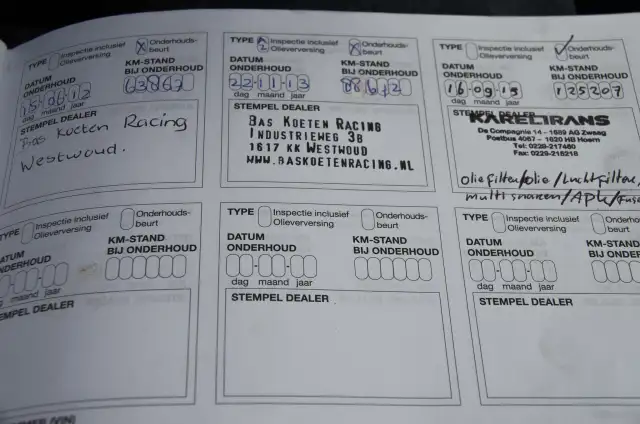 TYPE Inspectie inclusief Olieverversing X Onderhouds-beurt
DATUM ONDERHOUD
KM-STAND BIJ ONDERHOUD
15-06-12
63867
dag maand jaar
STEMPEL DEALER
Bas Koeten Racing
Westwoud.
TYPE Inspectie inclusief Olieverversing X Onderhouds-beurt
DATUM ONDERHOUD
KM-STAND BIJ ONDERHOUD
22-11-13
88612
dag maand jaar
STEMPEL DEALER
BAS KOETEN RACING
INDUSTRIEWEG 3B
1617 KK WESTWOUD
WWW.BASKOETENRACING.NL
TYPE Inspectie inclusief Olieverversing Onderhouds-beurt
DATUM ONDERHOUD
KM-STAND BIJ ONDERHOUD
16-09-15
125207
dag maand jaar
STEMPEL DEALER
KARELTRANS
De Compagnie 14 - 1689 AG Zwaag
Postbus 4067 - 1620 HB Hoorn
Tel: 0229-217480
Fax: 0229-218218
oliefilter/olie/luchtfilter,
multi snaren/APK/
TYPE Inspectie inclusief Olieverversing Onderhouds-beurt
DATUM ONDERHOUD
KM-STAND BIJ ONDERHOUD
dag maand jaar
STEMPEL DEALER
TYPE Inspectie inclusief Olieverversing Onderhouds-beurt
DATUM ONDERHOUD
KM-STAND BIJ ONDERHOUD
dag maand jaar
STEMPEL DEALER
TYPE Inspectie inclusief Olieverversing Onderhouds-beurt
DATUM ONDERHOUD
KM-STAND BIJ ONDERHOUD
dag maand jaar
STEMPEL DEALER
(VIN)